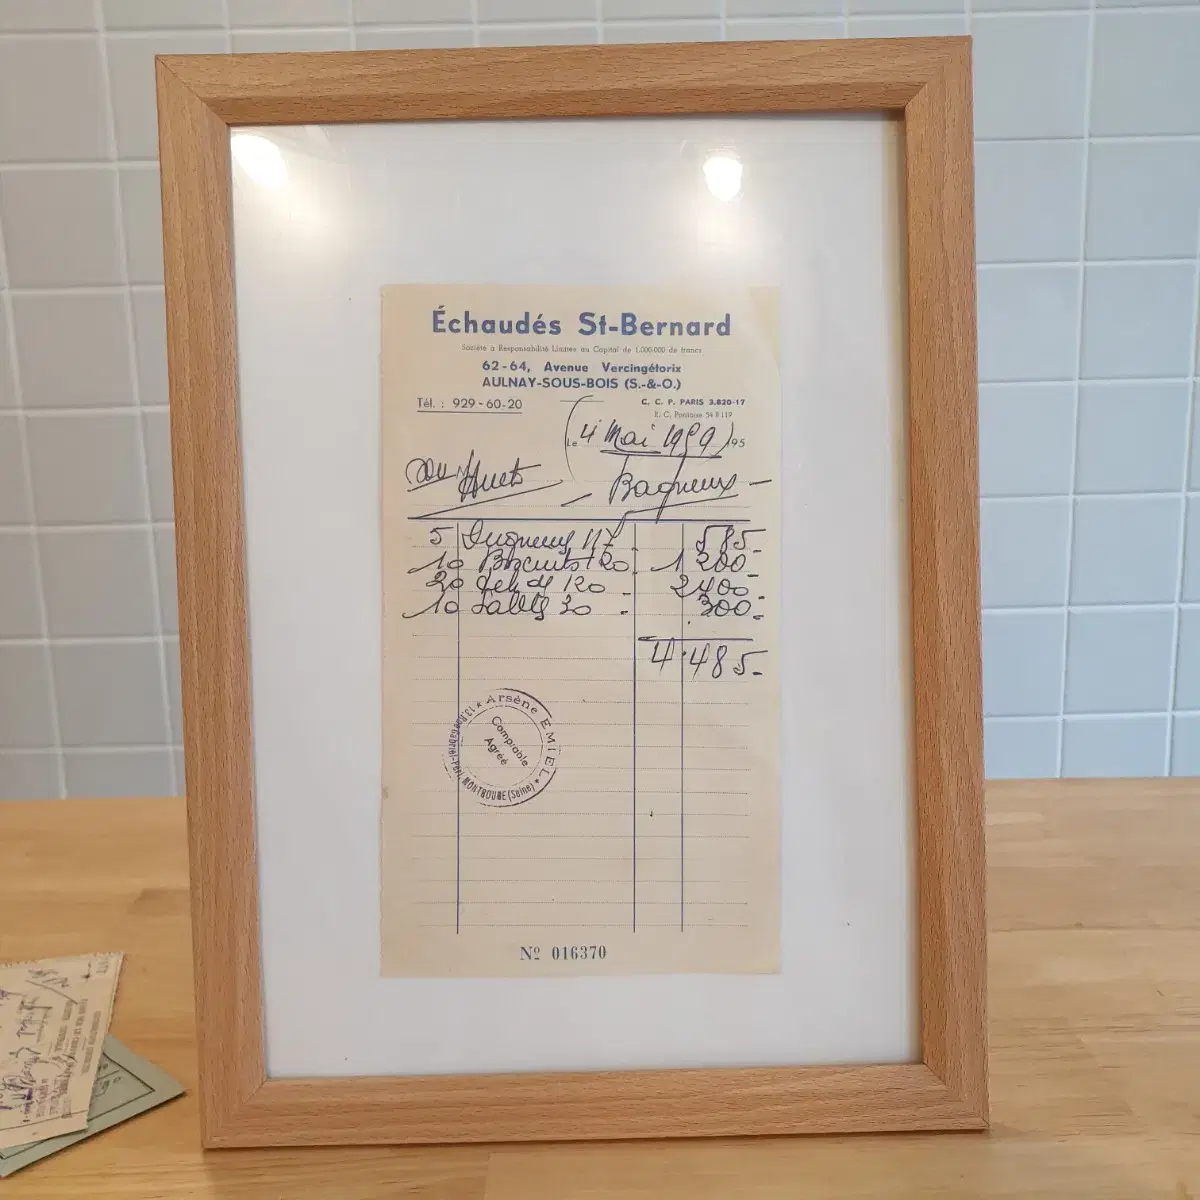 Échaudés St-Bernard
Société à Responsabilité Limitée au Capital de 1.000.000 de francs
62-64, Avenue Vercingétorix
AULNAY-SOUS-BOIS (S.-&-O.)
Tél. : 929-60-20
C. C. P. PARIS 3.820-17
R. C. Pontoise 54 B 119
Le 4 Mai 1959 195
Huet
Bagneux
5 117 585-
10 Biscuits 120 1 200-
20 120 - 2400-
10 Sablés 30 - 300-
4.485-
★ Arsène EMIEL ★
Comptable
Agréé
MONTROUGE (Seine)
Nº 016370